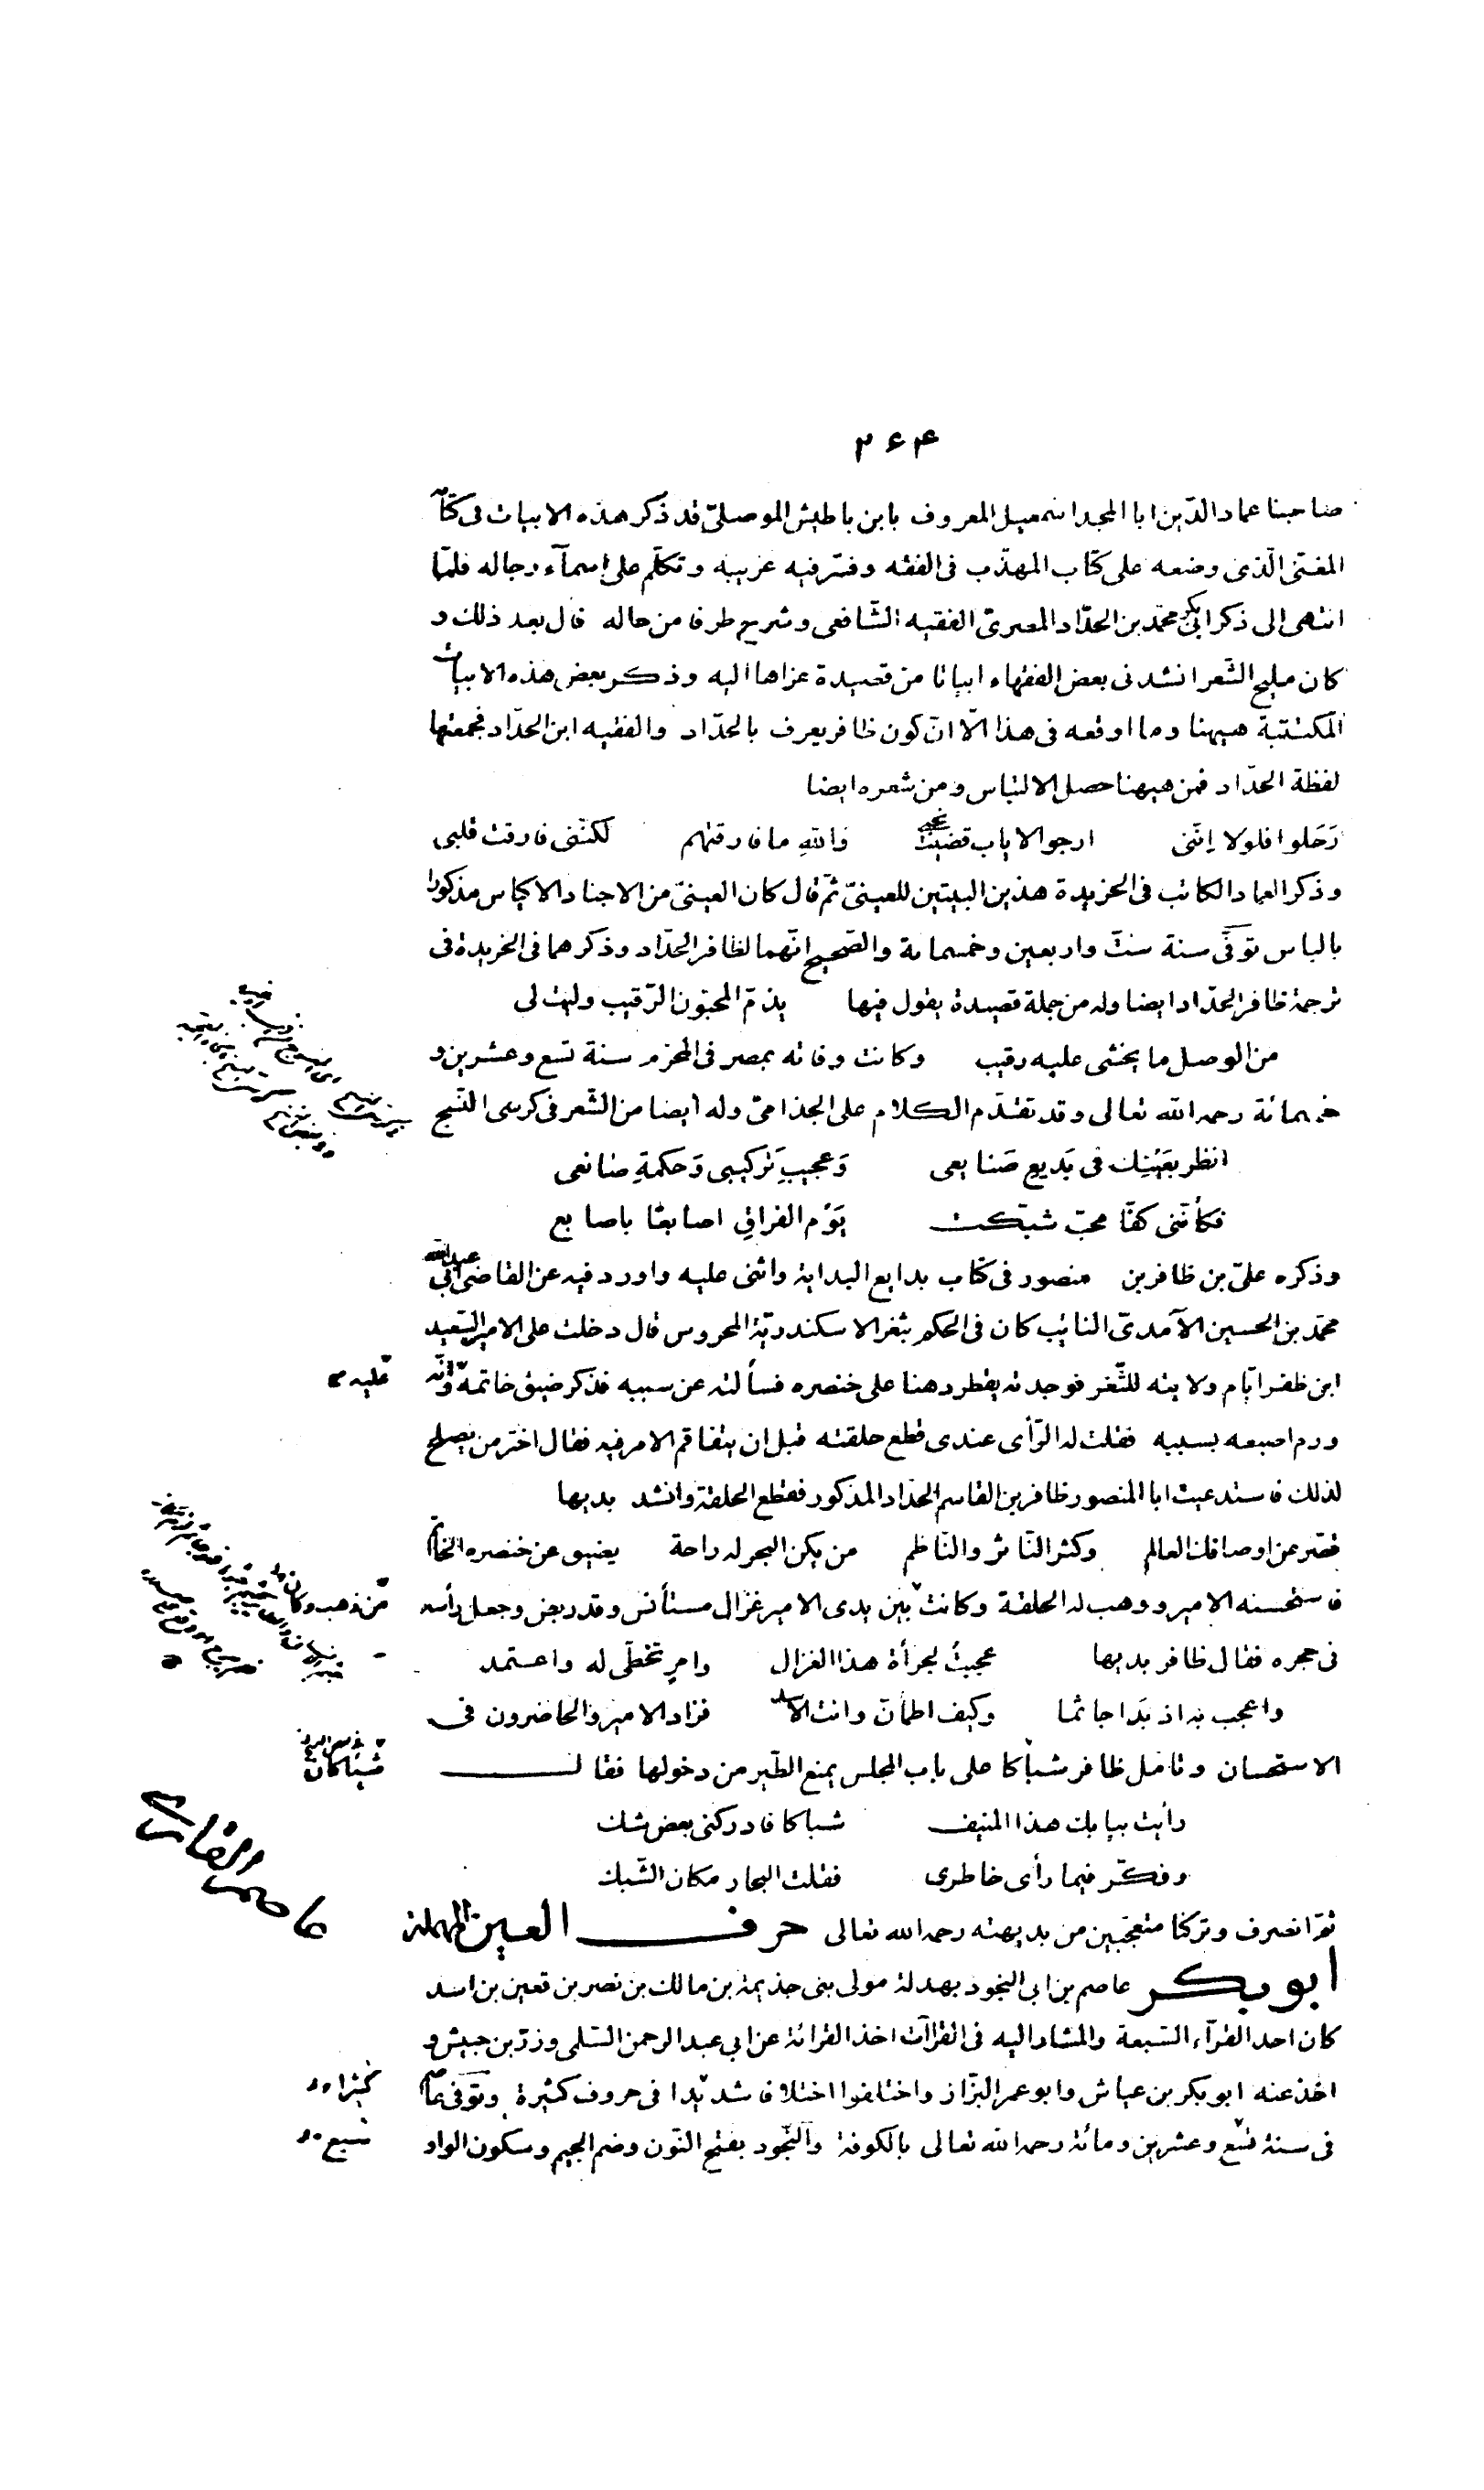 ۲۶۴
صاحبنا عماد الدّين ابا المجد اسمعيل المعروف بابن باطيش الموصلىّ قد ذكر هذه الابيات فى كتابه
المغنى الّذى وضعه على كتاب المهذّب فى الفقه وفسّر فيه غريبه وتكلّم على اسمآء رجاله فلمّا
انتهى الى ذكر ابى بكر محمّد بن الحدّاد المصرىّ الفقيه الشّافعى وشرح طرفا من حاله قال بعد ذلك و
كان مليح الشّعر انشدنى بعض الفقهاء ابياتا من قصيدة عزاها اليه وذكر بعض هذه الابيات
المكتتبة هيهنا وما اوقعه فى هذا الّا انّ كون ظافر يعرف بالحدّاد والفقيه ابن الحدّاد فجمعتها
لفظة الحدّاد فمن هيهنا حصل الالتباس ومن شعره ايضا
رَحَلوا فلولا اِنّنى ارجو الاياب قضيت نحبى وَاللّهِ ما فارقتهم لكنّنى فارقت قلبى
وذكر العماد الكاتب فى الخريدة هذين البيتين للعينىّ ثمّ قال كان العينىّ من الاجناد الاكياس مذكورا
بالباس توفّى سنة ستّ واربعين وخمسمائة والصّحيح انّهما لظافر الحدّاد وذكرهما فى الخريدة فى
ترجمة ظافر الحدّاد ايضا وله من جملة قصيدة يقول فيها يذمّ المحبّون الرّقيب وليت لى
من الوصل ما يخشى عليه رقيب وكانت وفاته بمصر فى المحرّم سنة تسع وعشرين و
خمسمائة رحمه اللّه تعالى وقد تقدّم الكلام على الجذامىّ وله ايضا من الشّعر فى كرسى النّسج
انظر بعَيْنِك فى بَديعِ صَنايعى وَعجيبِ تَركيبى وَحكمةِ صانعى
فكأنّنى كفّا محبّ شبّكت يَوْم الفراقِ اصابعًا باصابع
وذكره علىّ بن ظافر بن منصور فى كتاب بدايع البداية واثنى عليه واورد فيه عن القاضى ابى عبد اللّه
محمّد بن الحسين الآمدىّ النائب كان فى الحكم بثغر الاسكندريّة المحروس قال دخلت على الامير السّعيد
ابن ظفر ايّام ولايته للثّغر فوجدته يقطر دهنا على خنصره فسألته عن سببه فذكر ضيق خاتمه وّانّه
عليه
ورم اصبعه بسببه فقلت له الرّأى عندى قطع حلقته قبل ان يتفاقم الامر فيه فقال اختر من يصلح
لذلك فاستدعيت ابا المنصور ظافر بن القاسم الحدّاد المذكور فقطع الحلقة وانشد بديها
قصّر عن اوصافك العالم وكثر النّاثر والنّاظم من يكن البحر له راحة يضيق عن خنصره الخاتم
فاستحسنه الامير ووهب له الحلقة وكانت بين يدى الامير غزال مستأنس وقد ربض وجعل رأسه
من ذهب وكان
فى حجره فقال ظافر بديها عجبتُ لجرأة هذا الغزال وامرٍ تخطّى له واعتمد
واعجب به اذ بَدا جاثما وكيف اطمأنّ وانت الاسد فزاد الامير والحاضرون فى
الاستحسان وتأمّل ظافر شبّاكا على باب المجلس يمنع الطّير من دخولها فقال
رأيت ببابك هذا المنيف شباكا فادركنى بعض شك
وفكّر فيما رأى خاطرى فقلت البحار مكان الشّبك
ثمّ انصرف وتركنا متعجّبين من بديهته رحمه اللّه تعالى حرف العين المهملة
ابو بكر عاصم بن ابى النجود بهدلة مولى بنى جذيمة بن مالك بن نصر بن قعين بن اسد
عاصم القارى
كان احد القرّآء السّبعة والمشار اليه فى القراآت اخذ القرائة عن ابى عبد الرحمن السّلمى وزرّ بن حبيش و
اخذ عنه ابو بكر بن عياش وابو عمر البزّاز واختلفوا اختلافا شديدا فى حروف كثيرة وتوفّى عاصم
كثيرا
فى سنة تسع وعشرين ومائة رحمه اللّه تعالى بالكوفة والنّجود بفتح النّون وضم الجيم وسكون الواو
سبع